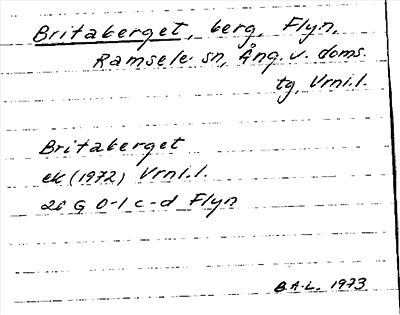 Britaberget, berg, Flyn,
Ramsele sn, Ång. v. doms.
tg, Vrnl.l.
Britaberget
ek (1972) Vrnl.l.
26 G 0-1 c-d Flyn
B.A-L. 1973